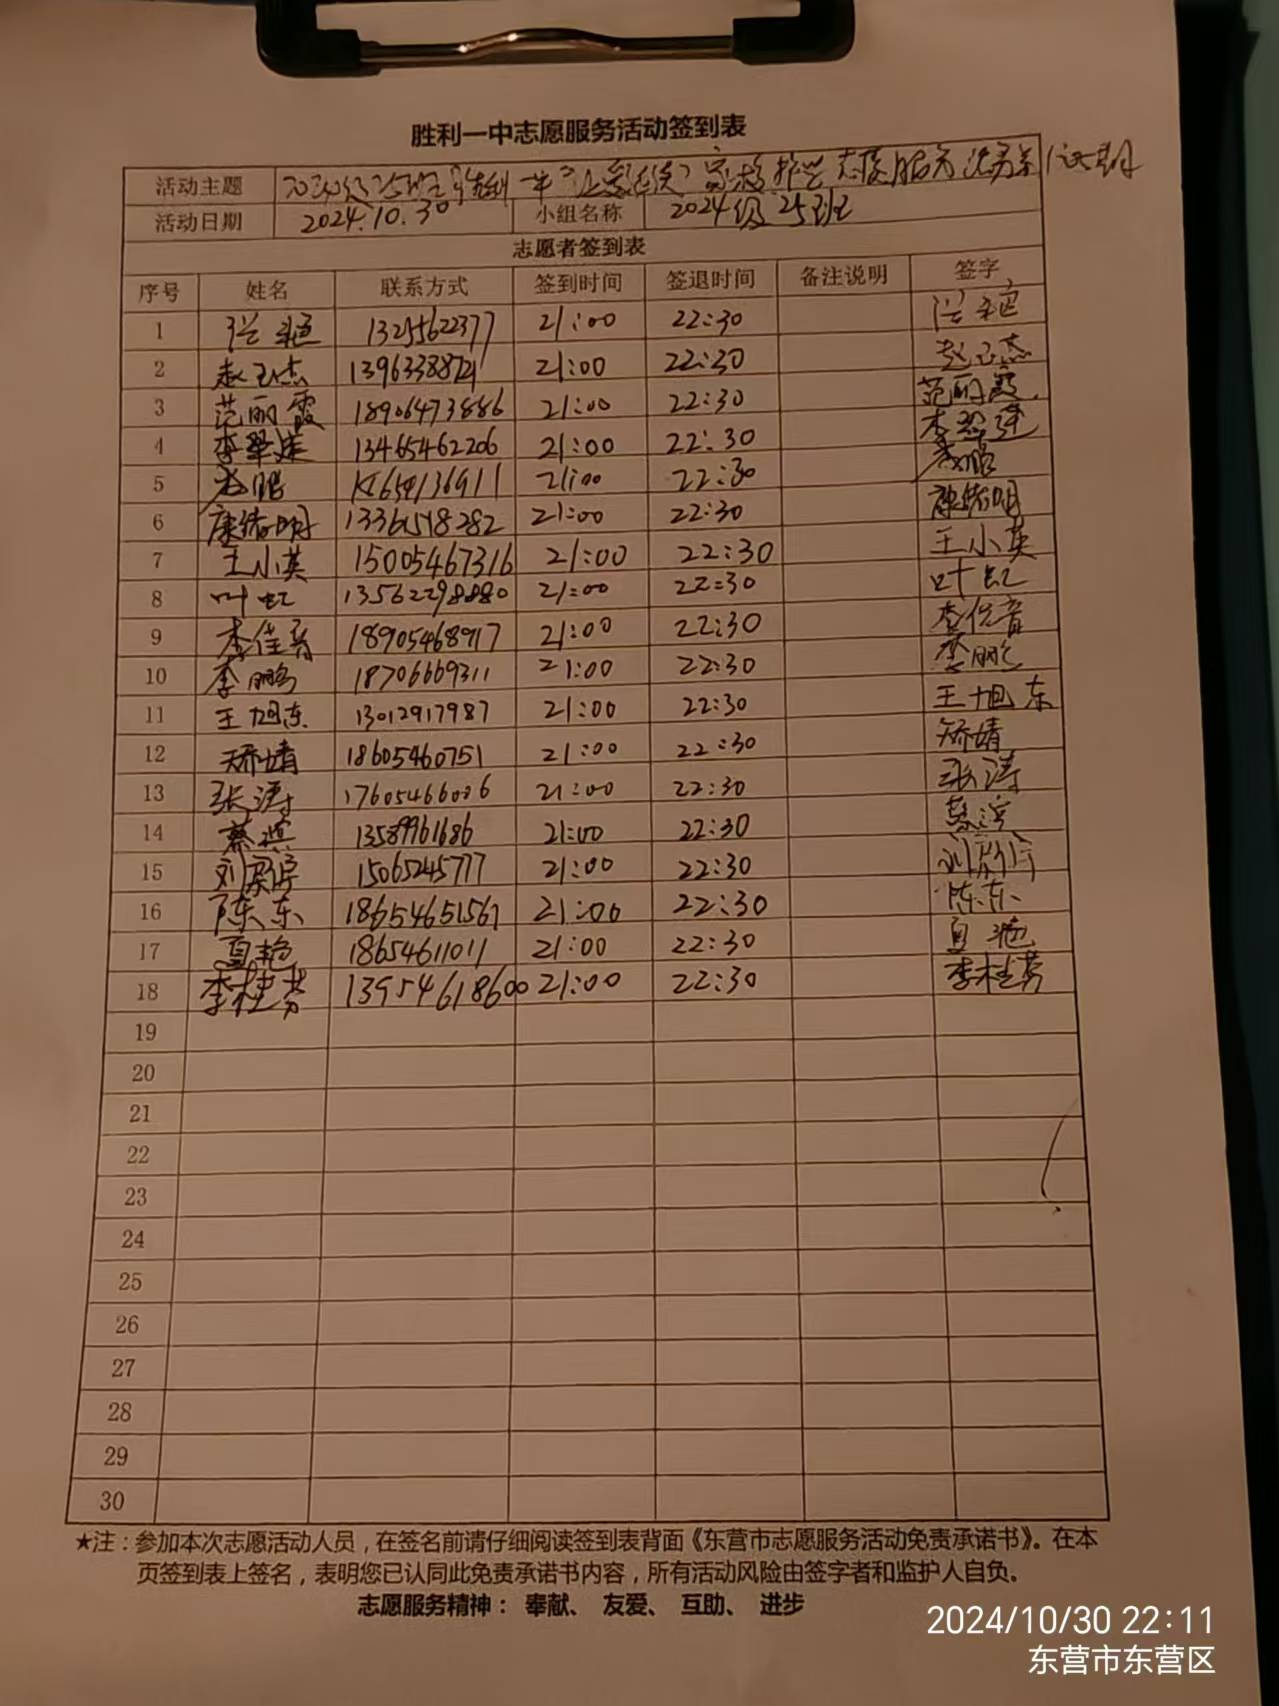 胜利一中志愿服务活动签到表
活动主题 2024级25班胜利一中 家校护学志愿服务活动
活动日期 2024.10.30 小组名称 2024级25班
志愿者签到表
序号 姓名 联系方式 签到时间 签退时间 备注说明 签字
1 13255622377 21:00 22:30
2 赵玉杰 21:00 22:30 赵玉杰
3 范丽霞 18906473886 21:00 22:30 范丽霞
4 13465462206 21:00 22:30
5 21:00 22:30
6 21:00 22:30
7 王小英 15005467316 21:00 22:30 王小英
8 叶虹 13562298880 21:00 22:30 叶虹
9 李佳音 18905468917 21:00 22:30 李佳音
10 李鹏 18706669311 21:00 22:30 李鹏
11 王旭东 13012917987 21:00 22:30 王旭东
12 矫婧 18605460751 21:00 22:30 矫婧
13 张涛 21:00 22:30 张涛
14 13589961686 21:00 22:30
15 15065245777 21:00 22:30
16 陈东 18654651567 21:00 22:30 陈东
17 夏艳 18654611011 21:00 22:30 夏艳
18 李桂芳 13954618600 21:00 22:30 李桂芳
19
20
21
22
23
24
25
26
27
28
29
30
★注：参加本次志愿活动人员，在签名前请仔细阅读签到表背面《东营市志愿服务活动免责承诺书》。在本
页签到表上签名，表明您已认同此免责承诺书内容，所有活动风险由签字者和监护人自负。
志愿服务精神： 奉献、 友爱、 互助、 进步
2024/10/30 22:11
东营市东营区